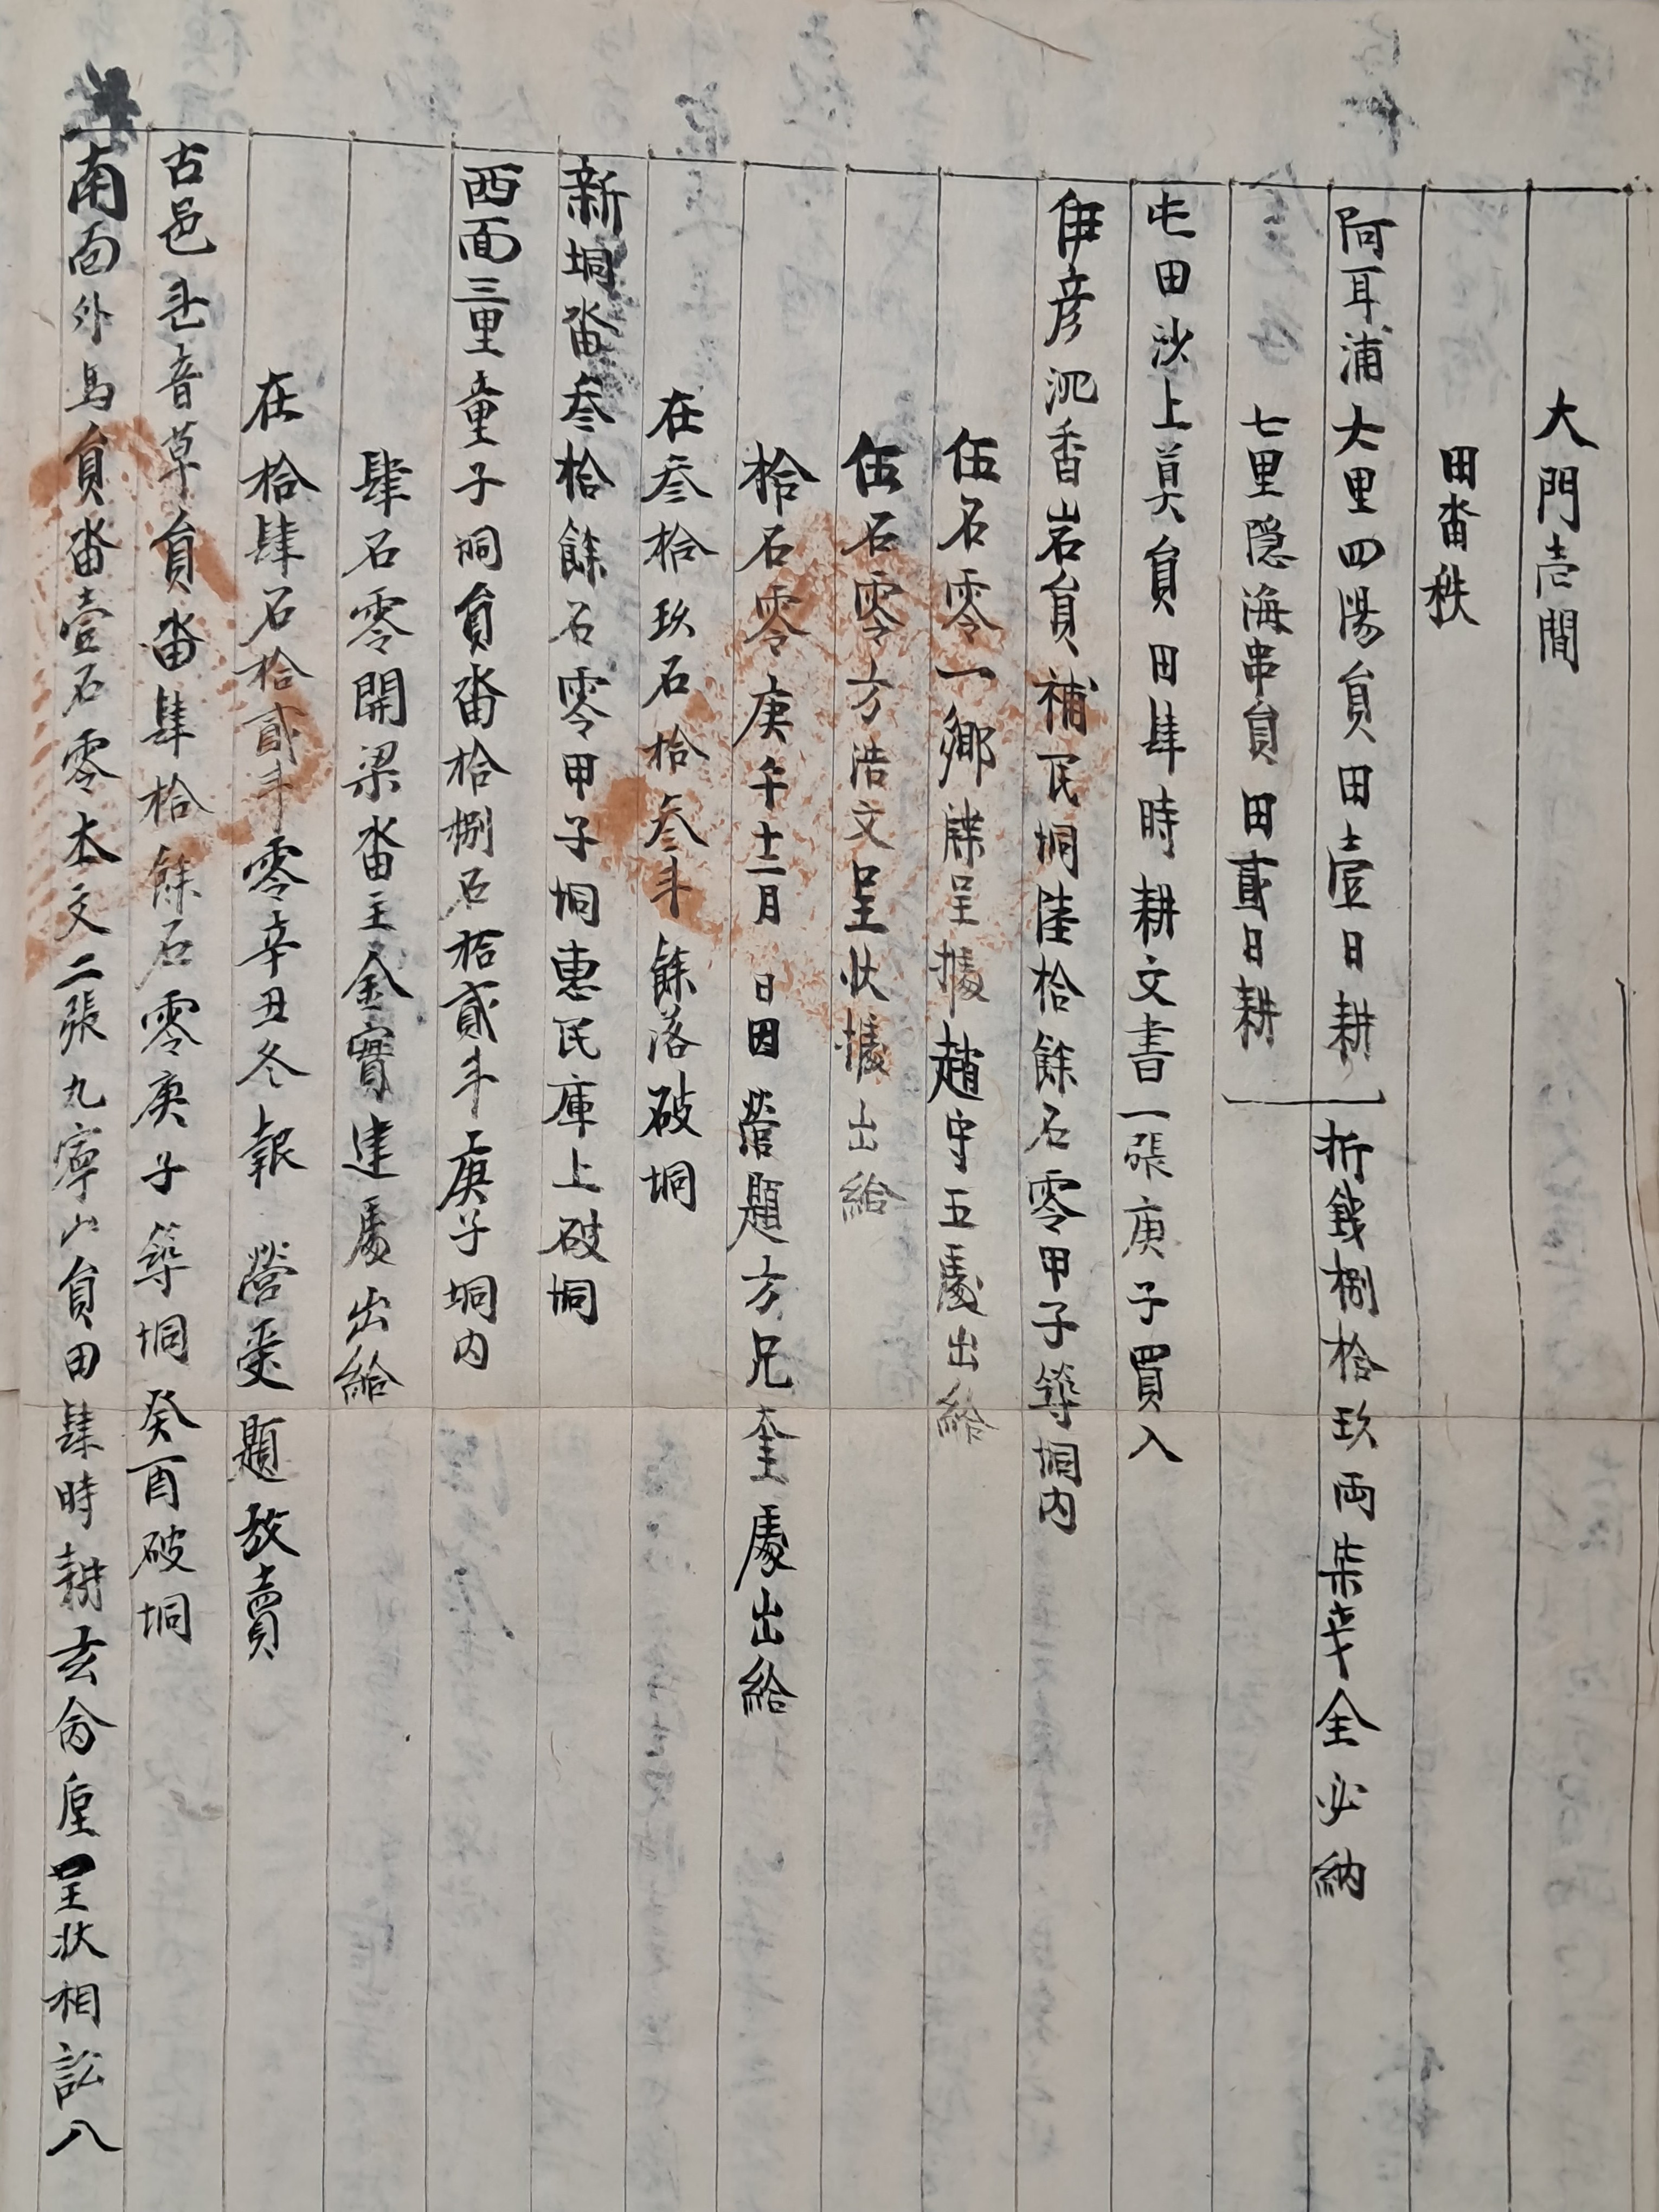 大門壱間
田畓秩
阿耳浦大里四陽員田壹日耕 折錢捌拾玖両柒戔全必納
七里隠海串員田貳日耕
屯田沙上莫員田肆時耕文書一張庚子買入
伊彦沉香岩員補民垌陸拾餘石零甲子筭垌内
伍石零一鄕牒呈據趙守五處出給
伍石零方浩文呈狀據出給
拾石零庚午十二月 日因 營題方兄奎處出給
在叁拾玖石拾叁斗餘落破垌
新垌畓叁拾餘石零甲子垌惠民庫上破垌
西面三里童子峒員畓拾捌石拾貳斗庚子垌内
肆石零開梁畓主金寶建處出給
在拾肆石拾貳斗零辛丑冬報 營受題放賣
古邑 音草員畓肆拾餘石零庚子筭垌癸酉破垌
南面外烏員畓壹石零本文二張九寧山員田肆時耕玄 垕呈狀相訟八